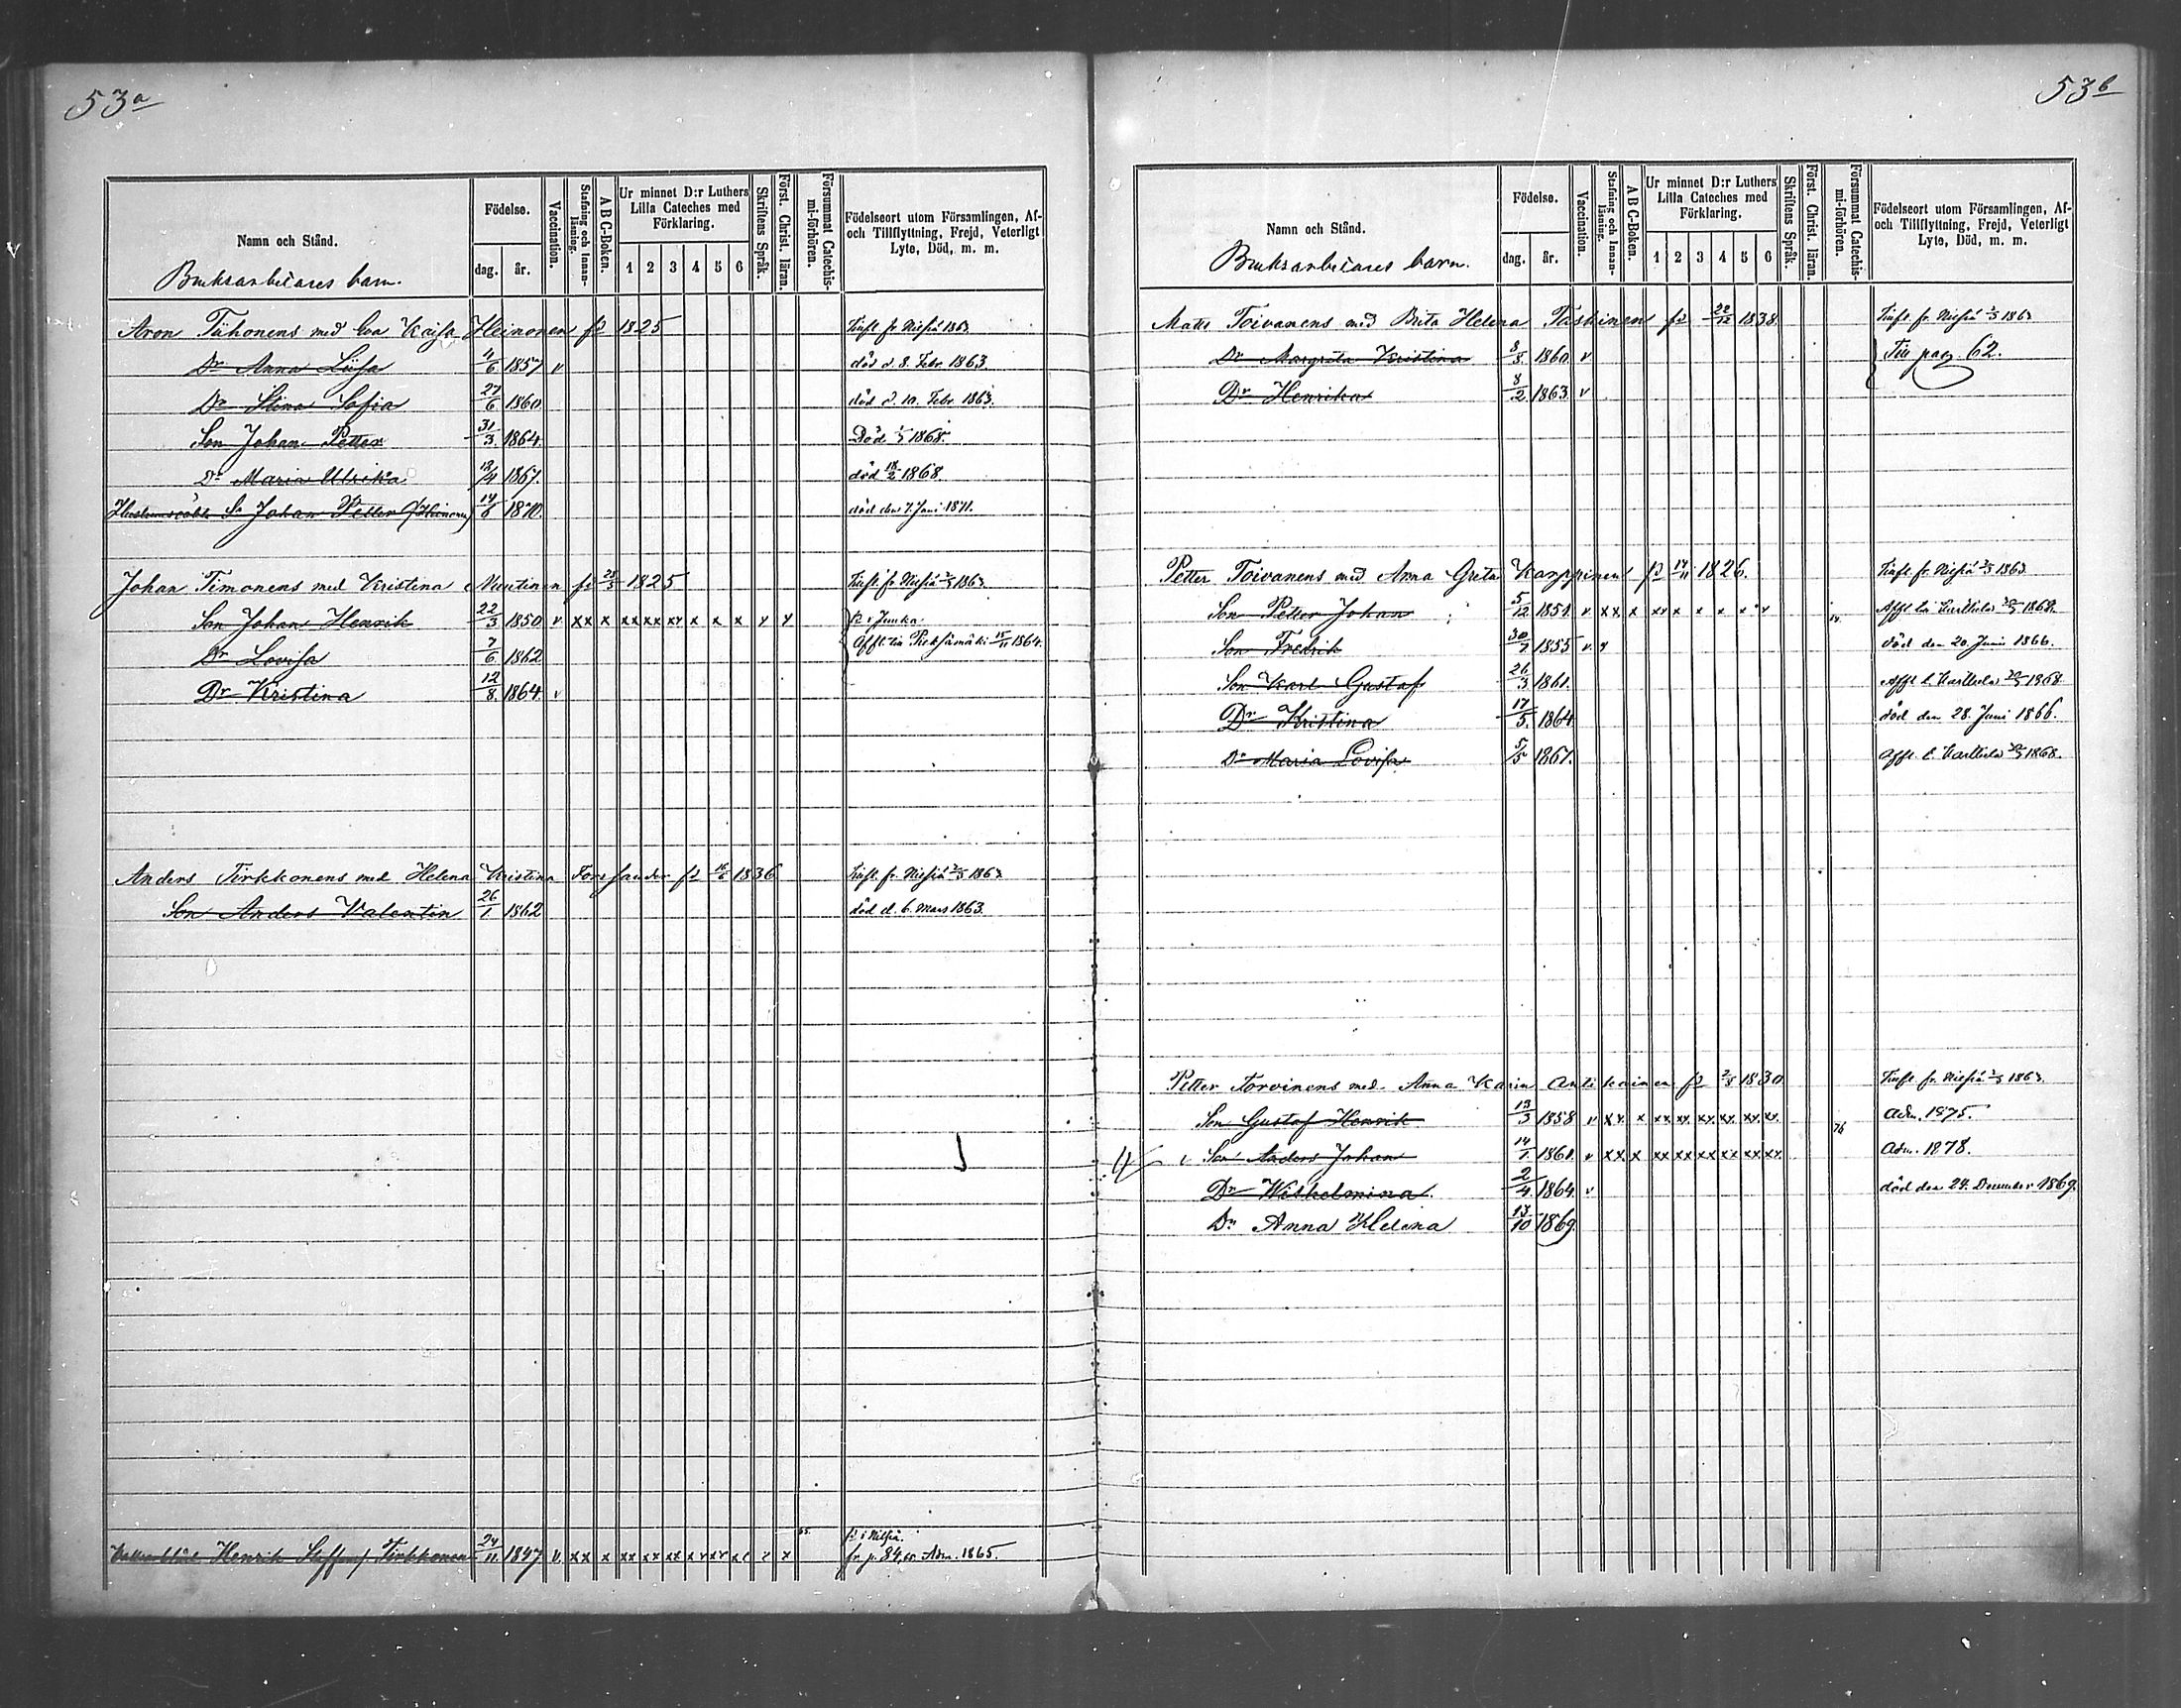 53a
Namn och Stånd.
Bruksarbetares barn.
Födelse.
dag. år.
Vaccination.
Stafning och Innan-läsning.
A B C-Boken.
Ur minnet D:r Luthers Lilla Cateches med Förklaring.
1 2 3 4 5 6
Skriftens Språk.
Först. Christ. läran.
Försummat Catechis-mi-förhören.
Födelseort utom Församlingen, Af- och Tillflyttning, Frejd, Veterligt Lyte, Död, m. m.
Aron Tiihonens med Eva Kajsa Heinonen fd 1825 Infl. fr. Nilsiä 1863
Dr Anna Liisa 4/6 1857 v död d. 8. Febr. 1863.
Dr Stina Sofia 27/6 1860 död d. 10. Febr. 1863.
Son Johan Petter 31/3 1864 Död 1868.
Dr Maria Ulrika 1867. död 18/2 1868.
Sn Johan Petter (Heinonen) 14/6 1870. död den 7. Juni 1871.
Johan Timonens med Kristina Mustinen fd 1825 Infl. fr. Nilsiä 1863.
Son Johan Henrik 22/3 1850 v xx x xx xx xx x x x v v fd i Juuka.
Dr Lovisa 7/6 1862 Affl. till Pieksämäki 15/11 1864.
Dr Kristina 12/8 1864 v
Anders Tirkkonens med Helena Kristina Forssander fd 1836 Infl. fr. Nilsiä 1863
Son Anders Valentin 26/1 1862 död d. 6. Mars 1863.
65. fd i Nilsiä.
Henrik Staffansson Tirkkonen 24/11 1847 v. xx x xx xx xx x x fr. p. 84, Adm. 1865.
53b
Namn och Stånd.
Bruksarbetares barn.
Födelse.
dag. år.
Vaccination.
Stafning och Innan-läsning.
A B C-Boken.
Ur minnet D:r Luthers Lilla Cateches med Förklaring.
1 2 3 4 5 6
Skriftens Språk.
Först. Christ. läran.
Försummat Catechis-mi-förhören.
Födelseort utom Församlingen, Af- och Tillflyttning, Frejd, Veterligt Lyte, Död, m. m.
Matts Toivanens med Brita Helena Taskinen fd 22/12 1838 Infl. fr. Nilsiä 1863
Dr Margreta Kristina 8/8 1860 v Till pag. 62.
Dr Henrika 8/2 1863 v
Petter Toivanens med Anna Greta Karppinen fd 14/11 1826. Infl. fr. Nilsiä 1863
Son Petter Johan 5/12 1851. v xx x xx x x x x v Affl. till Karttula 1868.
Son Fredrik 30/7 1855 v. v död den 20. Juni 1866.
Son Karl Gustaf 26/3 1861. Affl. t. Karttula 1868
Dr Kristina 17/5 1864 död den 28. Juni 1866.
Dr Maria Lovisa 5/5 1867. Affl. t. Karttula 1868.
Petter Torvinens med Anna Karin Antikainen fd 1830 Infl. fr. Nilsiä 1863.
Son Gustaf Henrik 13/3 1858 v xx x xx xx xx xx xx xx Adm. 1875.
76
Son Anders Johan 14/1 1861. v xx x xx xx xx xx xx xx Adm. 1878.
Dr Wilhelmina 2/4 1864 v död den 24. December 1869.
Dr Anna Helena 13/10 1869.